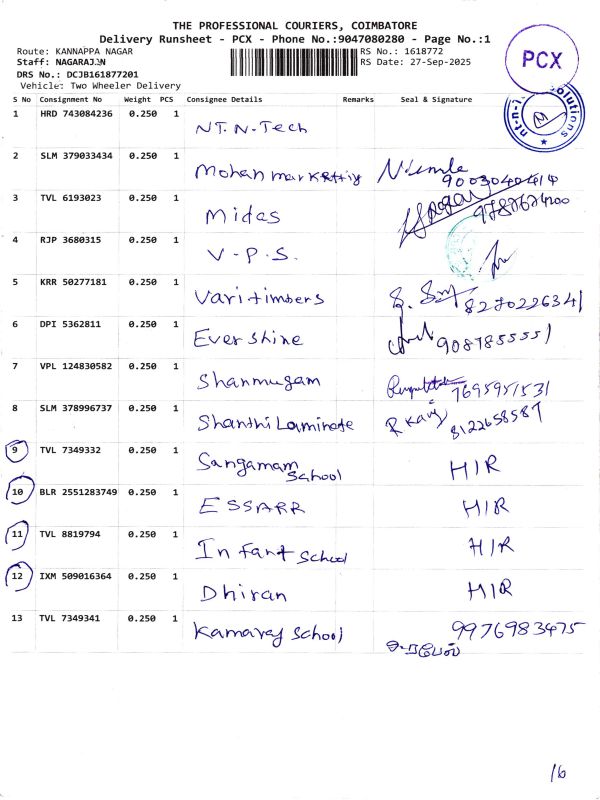 THE PROFESSIONAL COURIERS, COIMBATORE
Delivery Runsheet - PCX - Phone No.:9047080280 - Page No.:1
Route: KANNAPPA NAGAR RS No.: 1618772
Staff: NAGARAJAN RS Date: 27-Sep-2025
DRS No.: DCJB161877201
Vehicle: Two Wheeler Delivery
PCX
S No Consignment No Weight PCS Consignee Details Remarks Seal & Signature
1 HRD 743084236 0.250 1 N.T.N-Tech
nt-n-t solutions
2 SLM 379033434 0.250 1 Mohan marketting 9003040414
3 TVL 6193023 0.250 1 Midas 9787674200
4 RJP 3680315 0.250 1 V-P.S.
5 KRR 50277181 0.250 1 Vari timbers 8270226341
6 DPI 5362811 0.250 1 Evershine 9087855551
7 VPL 124830582 0.250 1 Shanmugam 7695951531
8 SLM 378996737 0.250 1 Shanthi Laminate R Kavi 8122658587
9 TVL 7349332 0.250 1 Sangamam School H/R
10 BLR 2551283749 0.250 1 ESSARR H/R
11 TVL 8819794 0.250 1 Infant School H/R
12 IXM 509016364 0.250 1 Dhiran H/R
13 TVL 7349341 0.250 1 Kamaraj School 9976983475
16